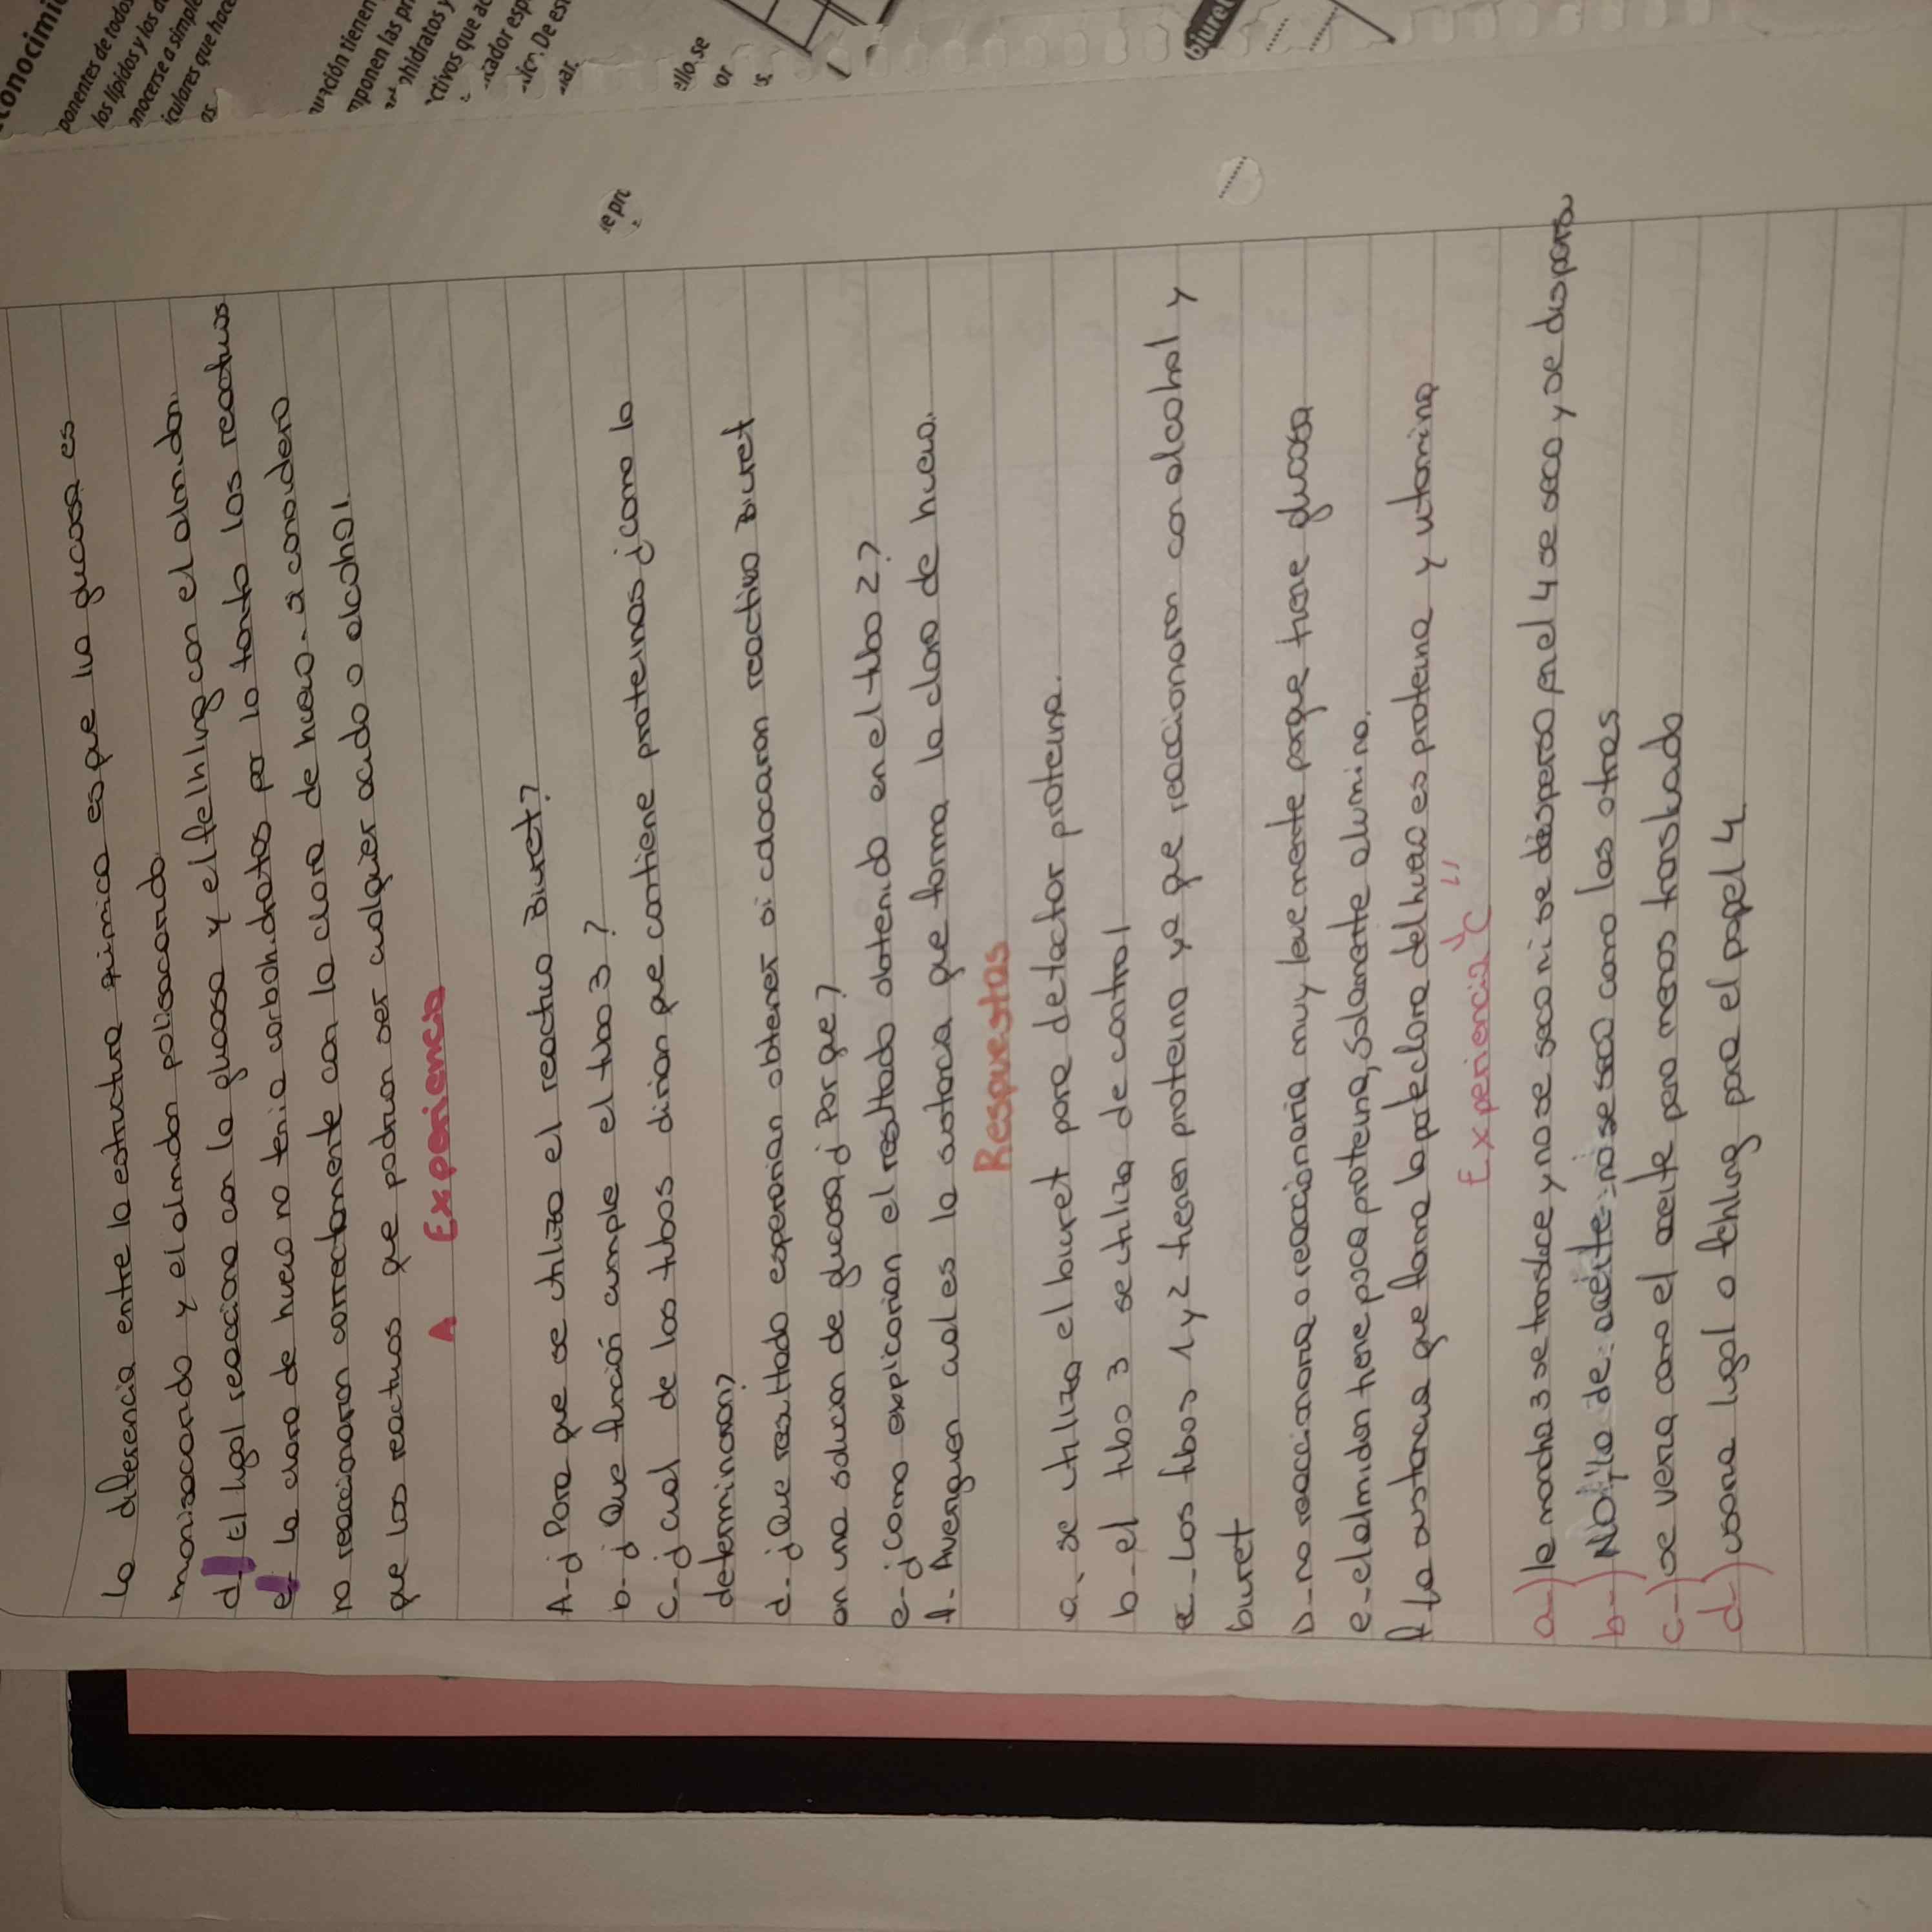 conocimi
ponentes de todos
los lípidos y los a
onocerse a simple
iculares que hace
as.
ración tienen
mponen las pr
ohidratos y
ctivos que ac
icador esp
De es
ello, se
or
s.
biuret
e pro
la diferencia entre la estructura quimica es que la glucosa es
monosacarido y el almidon polisacarido.
d- El lugol reacciona con la glucosa y el felhing con el almidon.
e- la clara de huevo no tenia carbohidratos por lo tanto los reactivos
no reaccionaron correctamente con la clara de huevo. a considero
que los reactivos que podrian ser cualquier acido o alcohol.
A Experiencia
A-¿Para que se utiliza el reactivo Biuret?
b-¿Que función cumple el tubo 3?
c-¿cual de los tubos dirian que contiene proteinas ¿como lo
determinaron?
d-¿Que resultado esperarian obtener si colocaran reactivo Biuret
en una solucion de glucosa,¿Porque?
e-¿como explicarian el resultado obtenido en el tubo 2?
f- Averiguen cual es la sustancia que forma la clara de huevo.
Respuestas
a- se utiliza el biuret para detectar proteina.
b- el tubo 3 se utiliza de control
c- Los tubos 1 y 2 tienen proteina ya que reaccionaron con alcohol y
buret
D- no reaccionaria o reaccionaria muy levemente porque tiene glucosa
e- el almidon tiene poca proteina, Solamente alumina.
f la sustancia que forma la parte clara del huevo es proteina y vitamina
Experiencia "C"
a-) la mancha 3 se trasluce y no se seco ni se disperso en el 4 se seco y se dispersa
b-) NOtilo de: aceite: no se seca como las otras
c-) se veria como el aceite pero menos traslucido
d-) usaria lugol o fehling para el papel 4